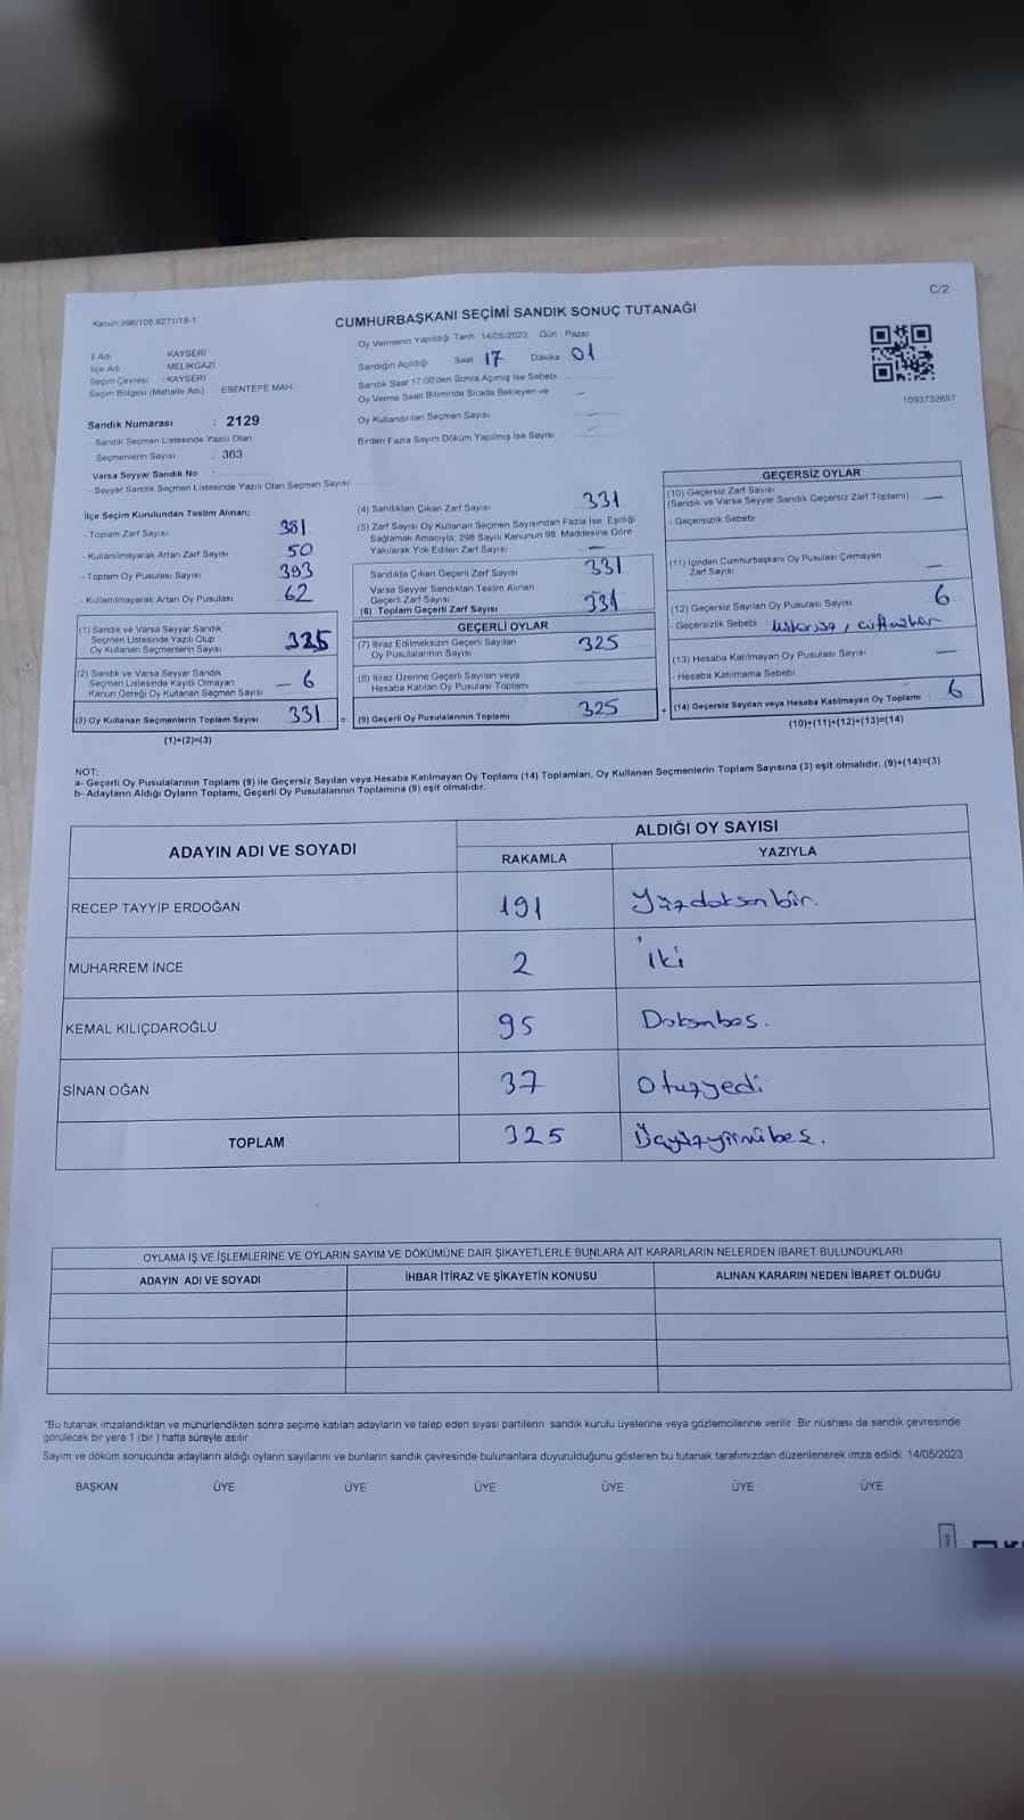 C/2
Kanun:298/105,6271/19-1
CUMHURBAŞKANI SEÇİMİ SANDIK SONUÇ TUTANAĞI
Oy Vermenin Yapıldığı Tarih 14/05/2023 Gün : Pazar
İl Adı : KAYSERİ
İlçe Adı : MELİKGAZİ
Seçim Çevresi : KAYSERİ
Seçim Bölgesi (Mahalle Adı) : ESENTEPE MAH.
Sandığın Açıldığı Saat 17 Dakika 01
Sandık Saat 17:00'den Sonra Açılmış İse Sebebi
Oy Verme Saati Bitiminde Sırada Bekleyen ve
Oy Kullandırılan Seçmen Sayısı —
Birden Fazla Sayım Döküm Yapılmış İse Sayısı —
1093732657
Sandık Numarası : 2129
- Sandık Seçmen Listesinde Yazılı Olan
Seçmenlerin Sayısı : 363
Varsa Seyyar Sandık No :
- Seyyar Sandık Seçmen Listesinde Yazılı Olan Seçmen Sayısı
İlçe Seçim Kurulundan Teslim Alınan;
- Toplam Zarf Sayısı 381
- Kullanılmayarak Artan Zarf Sayısı 50
- Toplam Oy Pusulası Sayısı 393
- Kullanılmayarak Artan Oy Pusulası 62
(1) Sandık ve Varsa Seyyar Sandık
Seçmen Listesinde Yazılı Olup
Oy Kullanan Seçmenlerin Sayısı 325
(2) Sandık ve Varsa Seyyar Sandık
Seçmen Listesinde Kayıtlı Olmayan
Kanun Gereği Oy Kullanan Seçmen Sayısı – 6
(3) Oy Kullanan Seçmenlerin Toplam Sayısı 331 =
(1)+(2)=(3)
(4) Sandıktan Çıkan Zarf Sayısı 331
(5) Zarf Sayısı Oy Kullanan Seçmen Sayısından Fazla İse, Eşitliği
Sağlamak Amacıyla; 298 Sayılı Kanunun 98. Maddesine Göre
Yakılarak Yok Edilen Zarf Sayısı —
Sandıkta Çıkan Geçerli Zarf Sayısı 331
Varsa Seyyar Sandıktan Teslim Alınan
Geçerli Zarf Sayısı
(6) Toplam Geçerli Zarf Sayısı 331
GEÇERLİ OYLAR
(7) İtiraz Edilmeksizin Geçerli Sayılan
Oy Pusulalarının Sayısı 325
(8) İtiraz Üzerine Geçerli Sayılan veya
Hesaba Katılan Oy Pusulası Toplamı
(9) Geçerli Oy Pusulalarının Toplamı 325 +
GEÇERSİZ OYLAR
(10) Geçersiz Zarf Sayısı
(Sandık ve Varsa Seyyar Sandık Geçersiz Zarf Toplamı) —
- Geçersizlik Sebebi
(11) İçinden Cumhurbaşkanı Oy Pusulası Çıkmayan
Zarf Sayısı —
(12) Geçersiz Sayılan Oy Pusulası Sayısı 6
- Geçersizlik Sebebi :
(13) Hesaba Katılmayan Oy Pusulası Sayısı —
- Hesaba Katılmama Sebebi
(14) Geçersiz Sayılan veya Hesaba Katılmayan Oy Toplamı 6
(10)+(11)+(12)+(13)=(14)
NOT:
a- Geçerli Oy Pusulalarının Toplamı (9) ile Geçersiz Sayılan veya Hesaba Katılmayan Oy Toplamı (14) Toplamları, Oy Kullanan Seçmenlerin Toplam Sayısına (3) eşit olmalıdır. (9)+(14)=(3)
b- Adayların Aldığı Oyların Toplamı, Geçerli Oy Pusulalarının Toplamına (9) eşit olmalıdır.
ADAYIN ADI VE SOYADI
ALDIĞI OY SAYISI
RAKAMLA YAZIYLA
RECEP TAYYİP ERDOĞAN 191 Yüzdoksanbir.
MUHARREM İNCE 2 İki
KEMAL KILIÇDAROĞLU 95 Doksanbeş.
SİNAN OĞAN 37 Otuzyedi
TOPLAM 325 Üçyüzyirmibeş.
OYLAMA İŞ VE İŞLEMLERİNE VE OYLARIN SAYIM VE DÖKÜMÜNE DAİR ŞİKAYETLERLE BUNLARA AİT KARARLARIN NELERDEN İBARET BULUNDUKLARI
ADAYIN ADI VE SOYADI İHBAR İTİRAZ VE ŞİKAYETİN KONUSU ALINAN KARARIN NEDEN İBARET OLDUĞU
*Bu tutanak imzalandıktan ve mühürlendikten sonra seçime katılan adayların ve talep eden siyasi partilerin sandık kurulu üyelerine veya gözlemcilerine verilir. Bir nüshası da sandık çevresinde
görülecek bir yere 1 (bir) hafta süreyle asılır.
Sayım ve döküm sonucunda adayların aldığı oyların sayılarını ve bunların sandık çevresinde bulunanlara duyurulduğunu gösteren bu tutanak tarafımızdan düzenlenerek imza edildi. 14/05/2023
BAŞKAN ÜYE ÜYE ÜYE ÜYE ÜYE ÜYE